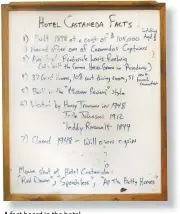 HOTEL CASTANEDA FACTS
1) Built 1898 at a cost of $ 105,000
2) Named after one of Coronado's Captains
3) Frederick Louis Roehrig
(also built the Hotel Green in Pasadena)
4) 37 Guest rooms, 108 seat dining room, 51
5) Built in the "Mission Revival" Style
6) Visited by Harry Truman in 1948
1912
Teddy Roosevelt 1899
7) Closed 1948 - Will open again
?
Movies Shot at Hotel Castaneda:
"Red Dawn", "Speechless", "
A fact board in the hotel